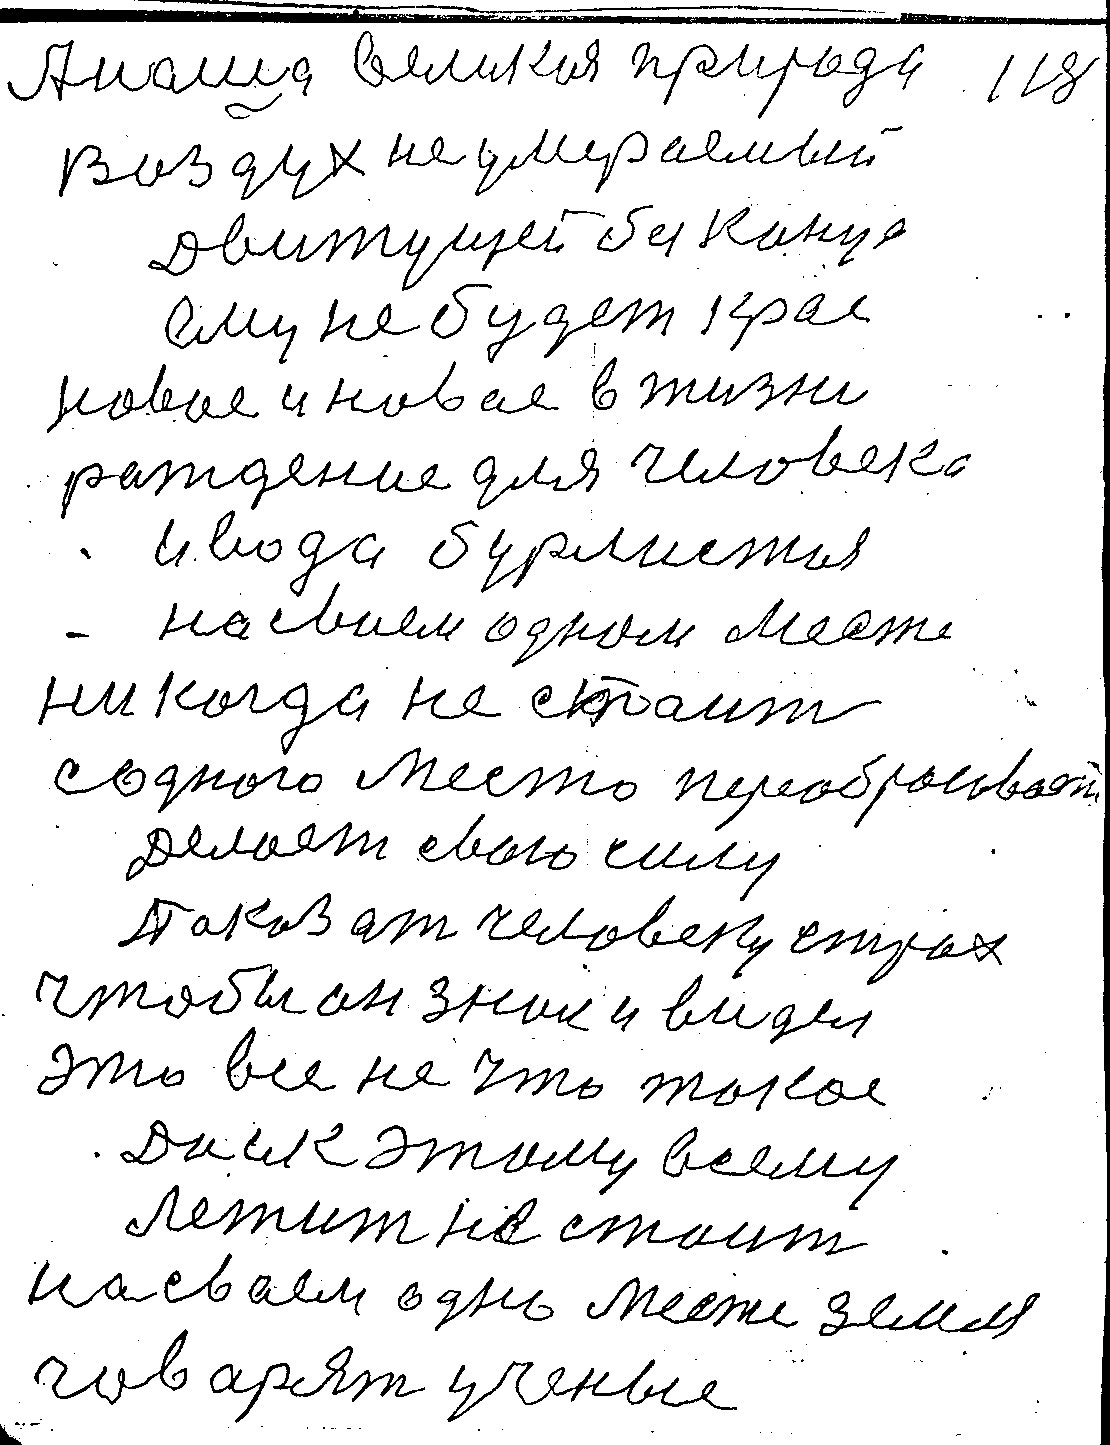 Анаша великая природа 118
воздух не умираемый
движущей бес конца
ему не будет крае
новое и новое в жизни
раждение для человека
и вода бурлистая
на своем одном месте
никогда не стоит
с одного место перебрасывает
делает свою силу
показат человеку страх
чтобы он знал и видел
это все не что такое
диск этому всему
летит не стоит
на сваем одно месте земля
говарят ученые